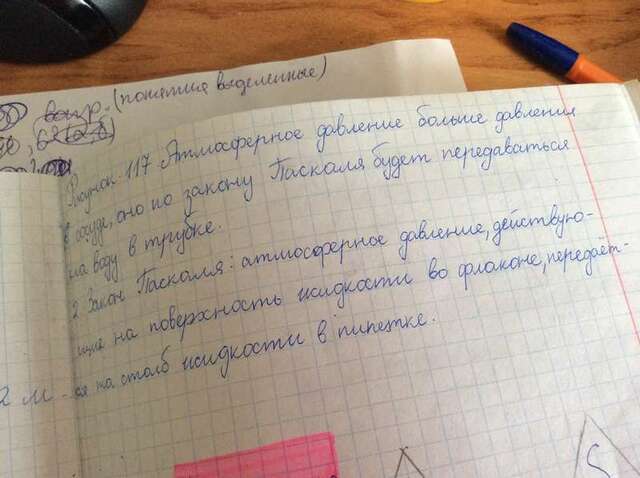 вопр. (понятия выделенные)
Рисунок 117 Атмосферное давление больше давления
в сосуде, оно по закону Паскаля будет передаваться
на воду в трубке.
2 Закон Паскаля: атмосферное давление, действую-
щие на поверхность жидкости во флаконе, передаёт-
ся на столб жидкости в пипетке.
2 м
S